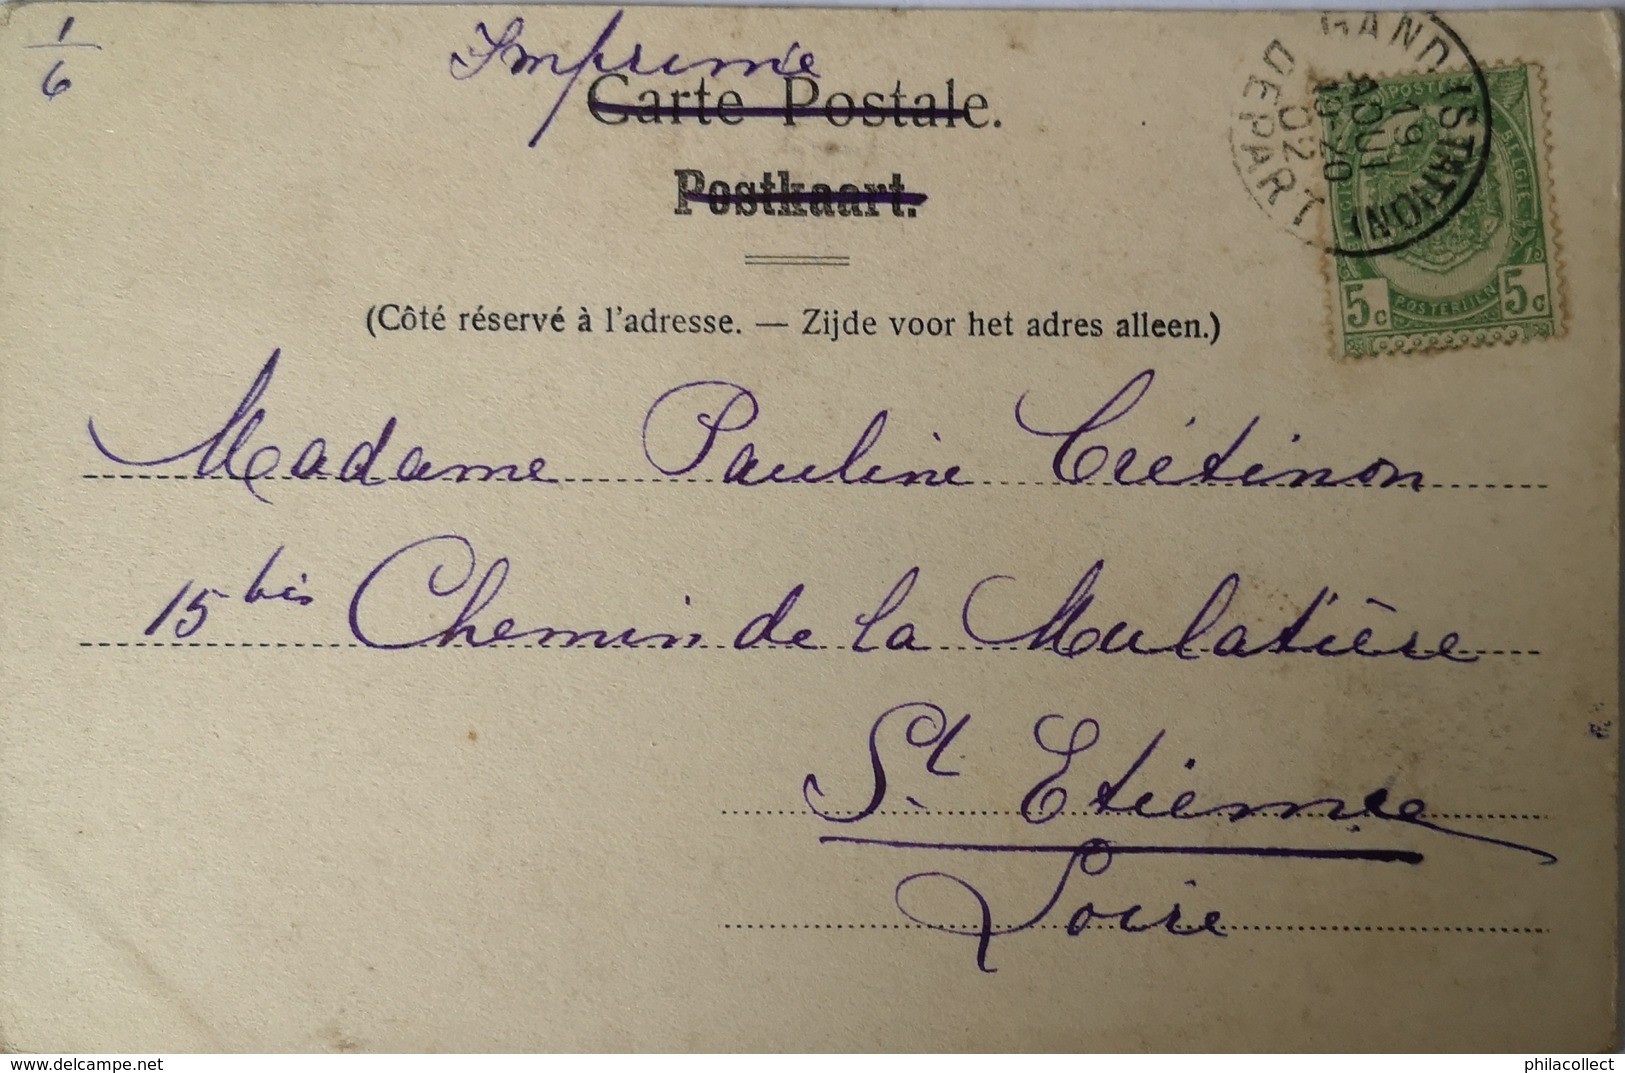 1/6
Imprimé
Carte Postale.
Postkaart.
(Côté réservé à l'adresse. — Zijde voor het adres alleen.)
GAND (STATION)
19
AOUT
19-20
02
DEPART
POSTES
BELGIE
POSTERIJEN
5c 5c
Madame Pauline Crétinon
15 bis Chemin de la Mulatière
St. Etienne
Loire
delcampe.net
philacollect